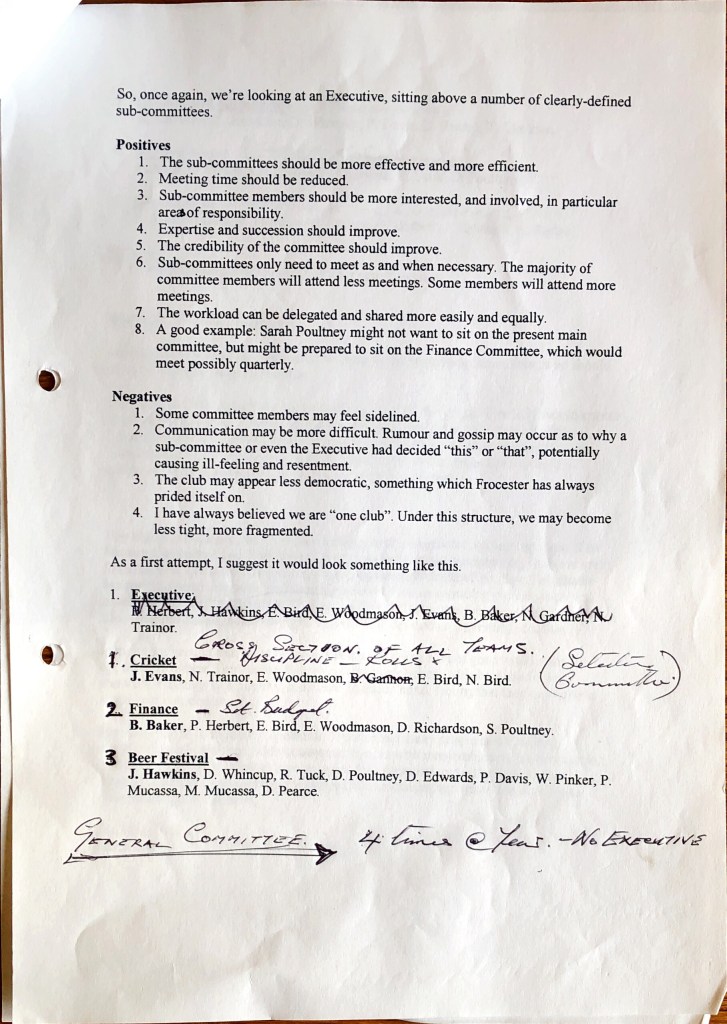 So, once again, we're looking at an Executive, sitting above a number of clearly-defined
sub-committees.
Positives
1. The sub-committees should be more effective and more efficient.
2. Meeting time should be reduced.
3. Sub-committee members should be more interested, and involved, in particular
areas of responsibility.
4. Expertise and succession should improve.
5. The credibility of the committee should improve.
6. Sub-committees only need to meet as and when necessary. The majority of
committee members will attend less meetings. Some members will attend more
meetings.
7. The workload can be delegated and shared more easily and equally.
8. A good example: Sarah Poultney might not want to sit on the present main
committee, but might be prepared to sit on the Finance Committee, which would
meet possibly quarterly.
Negatives
1. Some committee members may feel sidelined.
2. Communication may be more difficult. Rumour and gossip may occur as to why a
sub-committee or even the Executive had decided "this" or "that", potentially
causing ill-feeling and resentment.
3. The club may appear less democratic, something which Frocester has always
prided itself on.
4. I have always believed we are "one club". Under this structure, we may become
less tight, more fragmented.
As a first attempt, I suggest it would look something like this.
1. Executive:
P. Herbert, J. Hawkins, E. Bird, E. Woodmason, J. Evans, B. Baker, N. Gardner, N.
Trainor.
CROSS SECTION. OF ALL TEAMS.
1. Cricket — DISCIPLINE – ROLLS x
(Selection
Committee)
J. Evans, N. Trainor, E. Woodmason, B. Gannon, E. Bird, N. Bird.
2. Finance – Set. Budget.
B. Baker, P. Herbert, E. Bird, E. Woodmason, D. Richardson, S. Poultney.
3 Beer Festival —
J. Hawkins, D. Whincup, R. Tuck, D. Poultney, D. Edwards, P. Davis, W. Pinker, P.
Mucassa, M. Mucassa, D. Pearce.
GENERAL COMMITTEE. 4 times @ Year. – NO EXECUTIVE